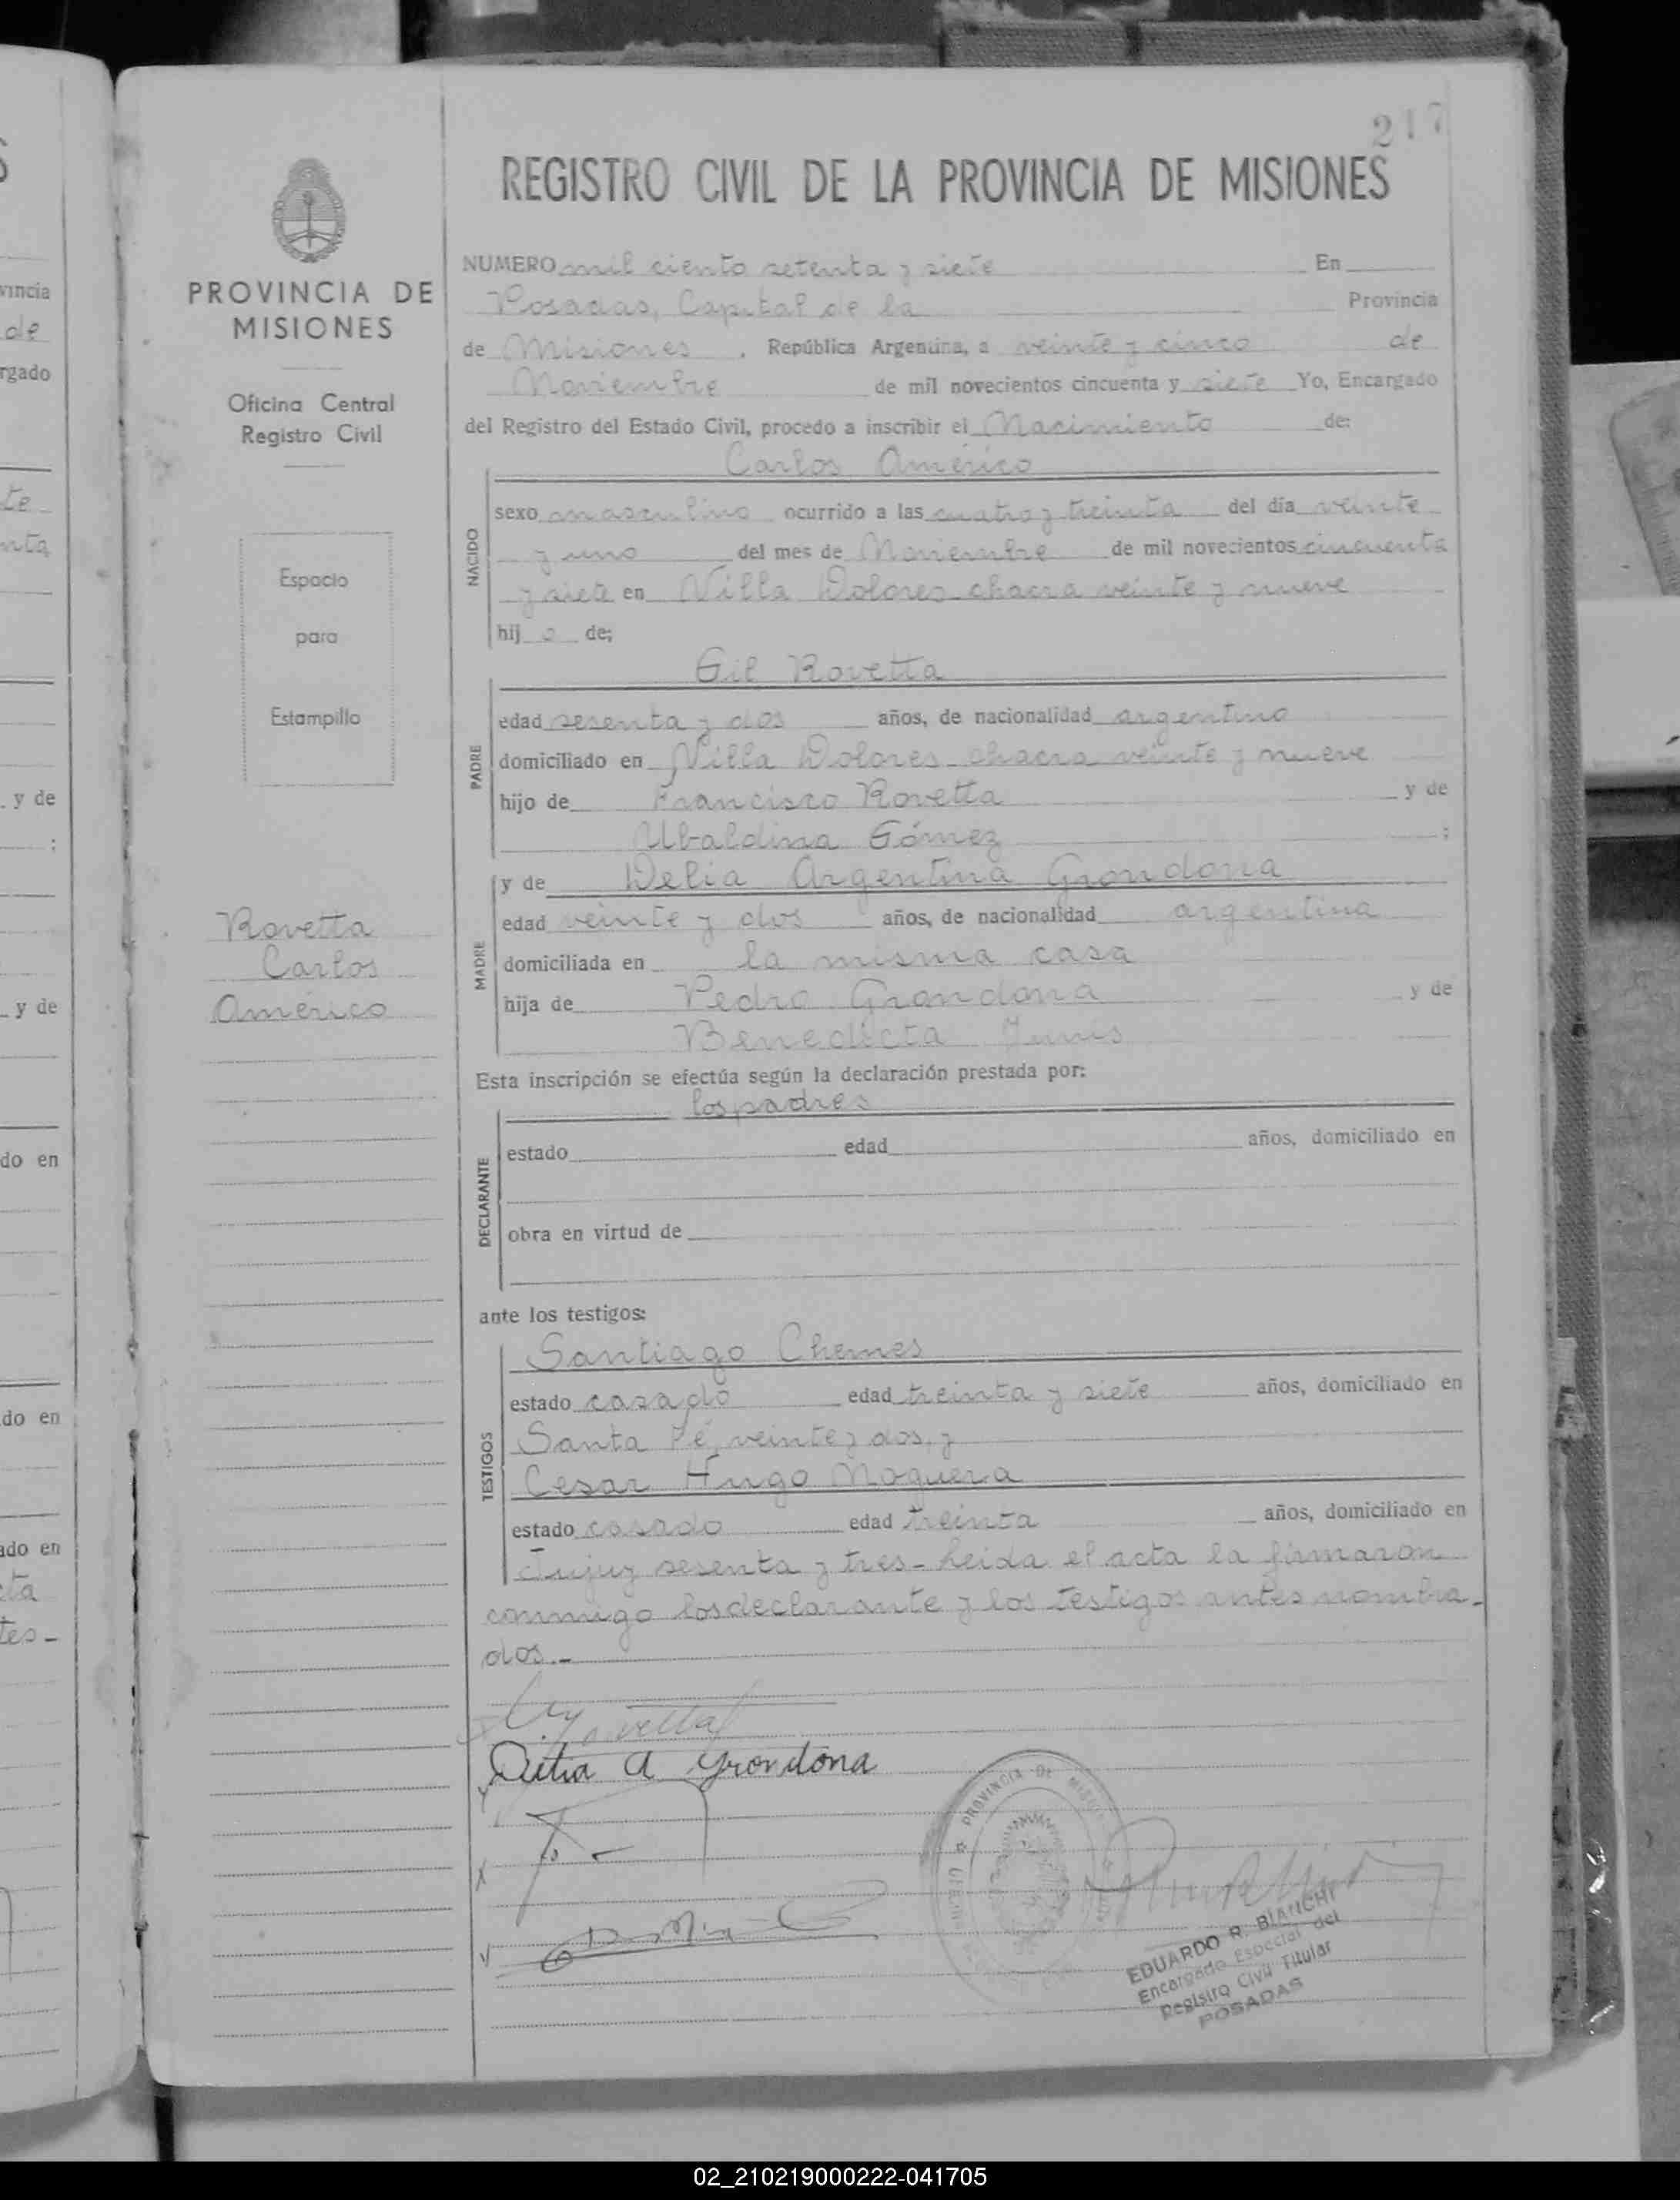 217
REGISTRO CIVIL DE LA PROVINCIA DE MISIONES
PROVINCIA DE
MISIONES
Oficina Central
Registro Civil
Espacio
para
Estampillo
Rovetta
Carlos
Américo
NUMERO mil ciento setenta y siete En
Posadas, Capital de la Provincia
de Misiones, República Argentina, a veinte y cinco de
Noviembre de mil novecientos cincuenta y siete Yo, Encargado
del Registro del Estado Civil, procedo a inscribir el Nacimiento de:
Carlos Américo
NACIDO
sexo masculino ocurrido a las cuatro y treinta del día veinte
y uno del mes de Noviembre de mil novecientos cincuenta
y siete en Villa Dolores chacra veinte y nueve
hijo de;
Gil Rovetta
PADRE
edad sesenta y dos años, de nacionalidad argentino
domiciliado en Villa Dolores chacra veinte y nueve
hijo de Francisco Rovetta y de
Ubaldina Gómez ;
y de Delia Argentina Grondona
MADRE
edad veinte y dos años, de nacionalidad argentina
domiciliada en la misma casa
hija de Pedro Grondona y de
Benedicta
Esta inscripción se efectúa según la declaración prestada por:
los padres
DECLARANTE
estado edad años, domiciliado en
obra en virtud de
ante los testigos:
Santiago Chemes
TESTIGOS
estado casado edad treinta y siete años, domiciliado en
Santa Fé, veinte y dos, y
Cesar Hugo Noguera
estado casado edad treinta años, domiciliado en
Jujuy sesenta y tres- Leida el acta la firmaron
conmigo los declarante y los testigos antes nombra-
dos.-
Delia A Grondona
PROVINCIA DE
EDUARDO R. BIANCHI
Encargado Especial del
Registro Civil Titular
POSADAS
vincia
de
rgado
te
nta
y de
:
y de
do en
do en
ado en
cta
tes-
02_210219000222-041705